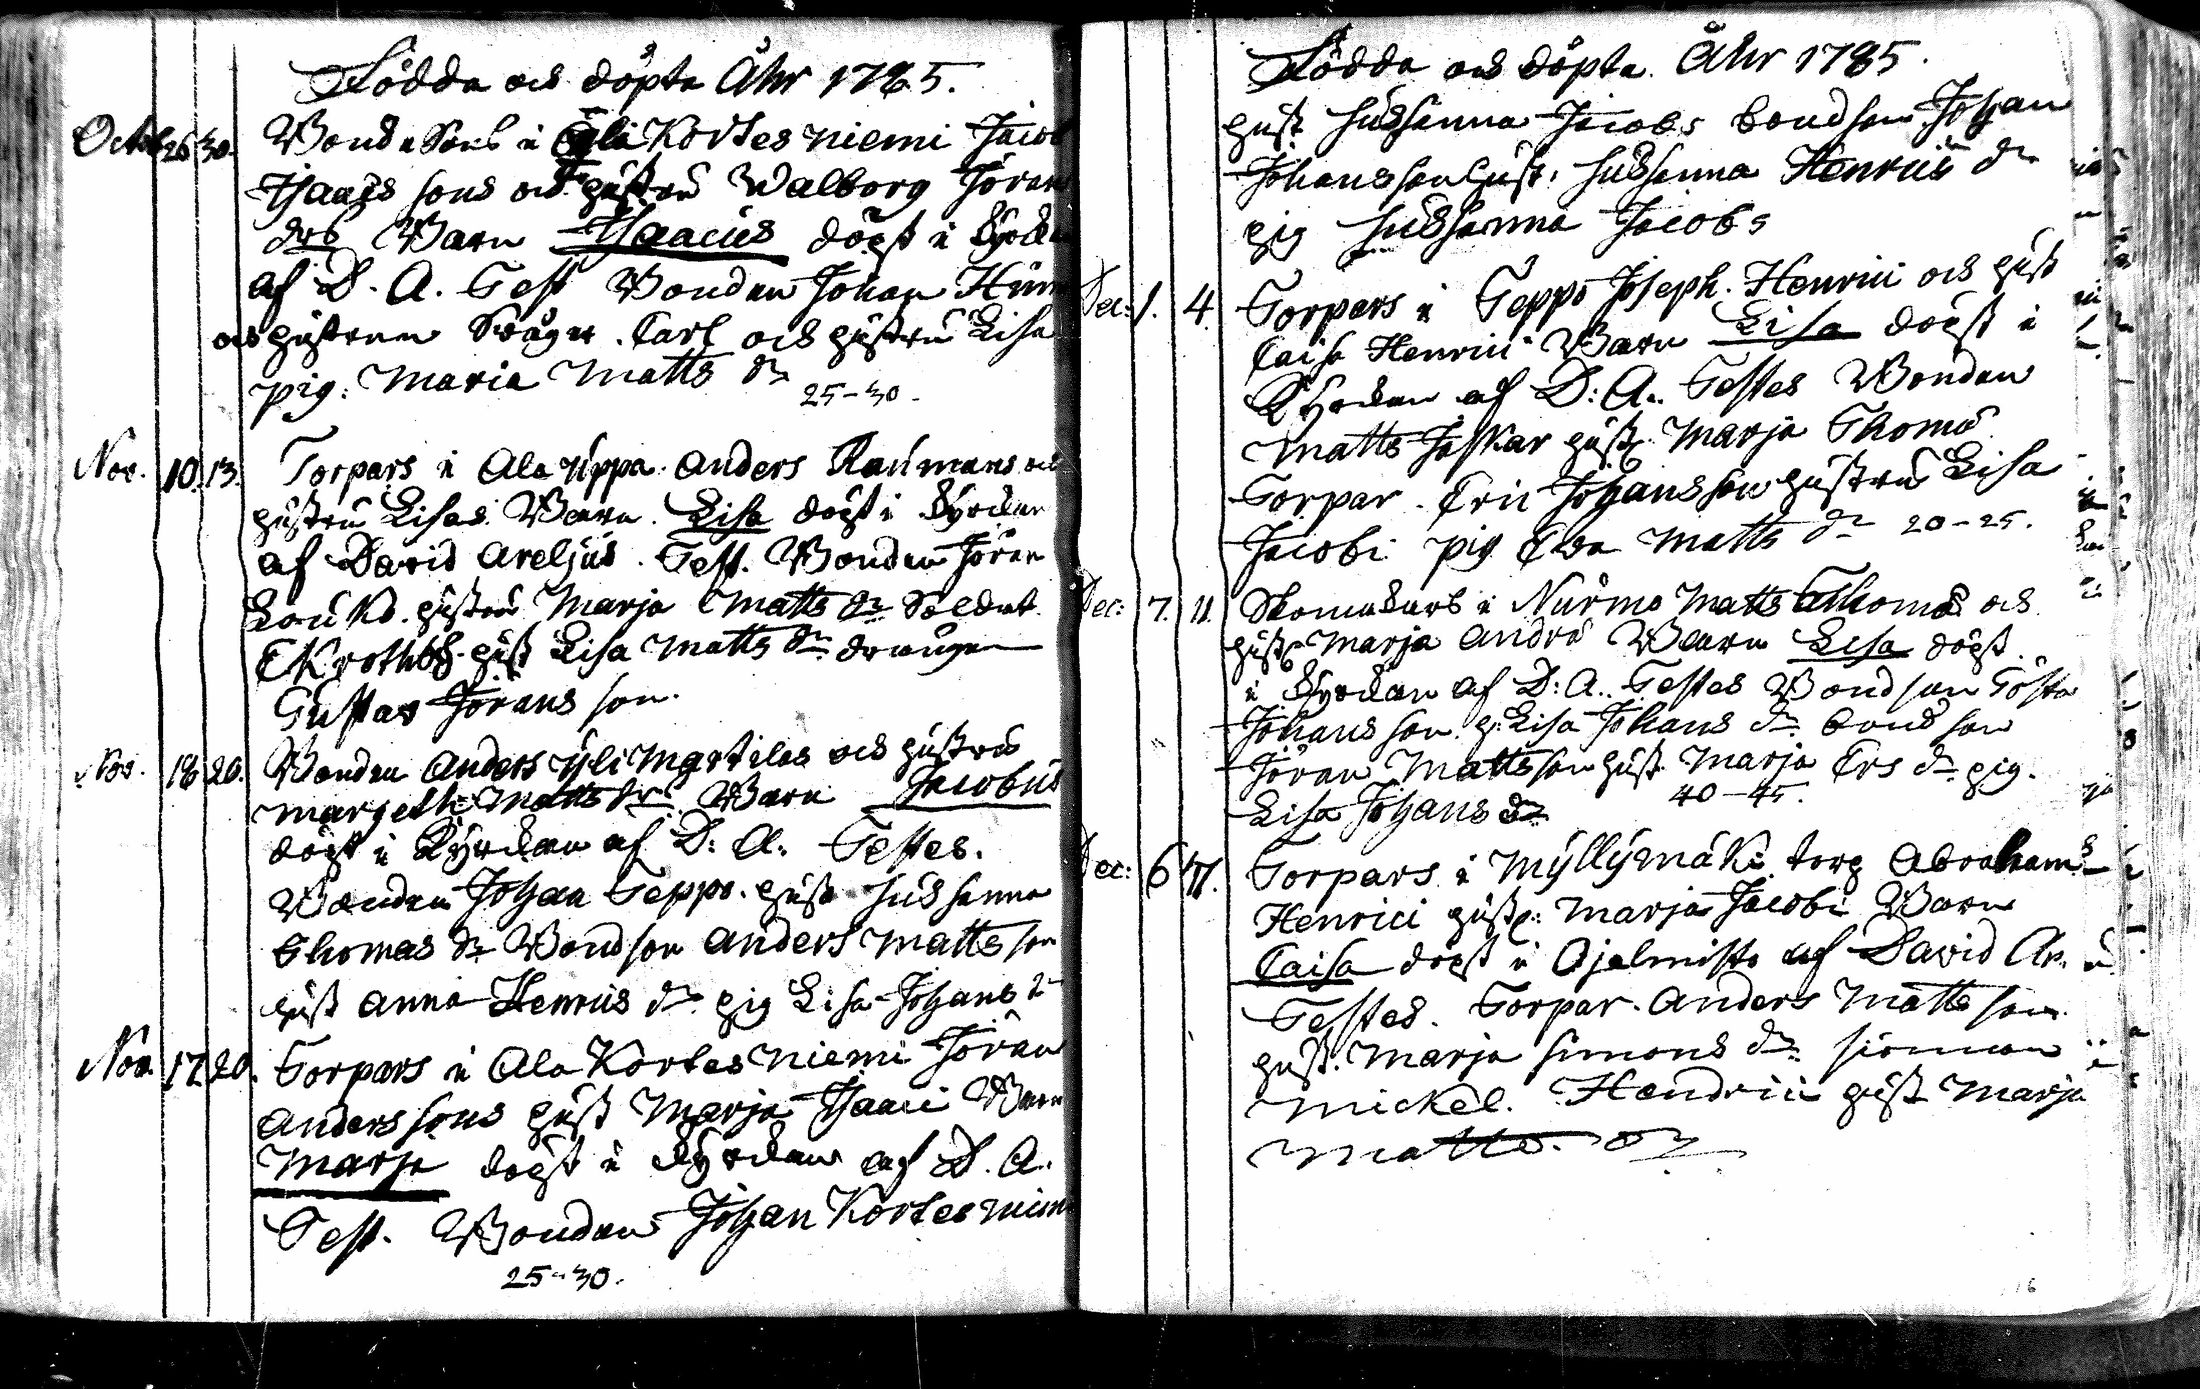 Födda och döpta Åhr 1785.
Octob. 26 30. Bonde Sons i Yli Kortesniemi Jacob
Isaacs sons och hustru Walborg Jöran
drs Barn Isaacus döpt i Kyrck
af D. A. Test Bonden Johan
och hustrun Swäger Carl och hustru Lisa
pig: Maria Matts dr
25-30.
Nov. 10. 13. Torpars i Ala Uppa Anders Raumans och
hustru Lisas Barn. Lisa döpt i Kyrckan
af David Areljus. Test. Bonden Jöran
Loukko hustru Marja Matts dr Soldat
Ekroth hust Lisa Matts dr drängen
Gustav Jörans son.
Nov. 18 20. Bonden Anders Yli Martilas och hustru
Margeth Matts dr Barn Jacobus
döpt i Kyrckan af D: A. Testes.
Bonden Johan Seppo. hust Sussanna
Thomas dr Bondson Anders Matts son
hust Anna Henrics dr pig Lisa Johans dr
Nov. 17 20. Torpars i Ala Kortesniemi Jöran
Anders sons hust Marja Isaaci Barn
Marja döpt i Kyrckan af D. A.
Test. Bonden Johan Kortesniemi
25-30.
Födda och döpta Åhr 1785.
hust Sussanna Jacobs bondson Johan
Johansson hust. Sussanna Henrics dr
pig Sussanna Jacobs
Dec: 1. 4. Torpars i Seppo Joseph. Henrici och hust
Caisa Henrici Barn Lisa döpt i
Kyrckan af D: A. Testes Bonden
Matts Jaskar hust. Marja Thomæ
Torpar Eric Johansson hustru Lisa
Jacobi pig Ewa Matts dr 20-25.
Dec: 7. 11. Skomakars i Nurmo Matts Thomæ och
hust Marja Andræ Barn Lisa döpt
i Kyrckan af D: A. Testes Bondson Gösta
Johans son. p: Lisa Johans dr. bondson
Jöran Mattsson hust Marja Ers dr. pig.
Lisa Johans dr 40-45.
Dec: 6 17. Torpars i Myllymäki torp Abrahams
Henrici hust: Marja Jacobi Barn
Caisa döpt i af David Ar.
Testes. Torpar. Anders Matts son
hust. Marja Simons dr
Mickel. Hendrici hust Marja
Matts. dr
16